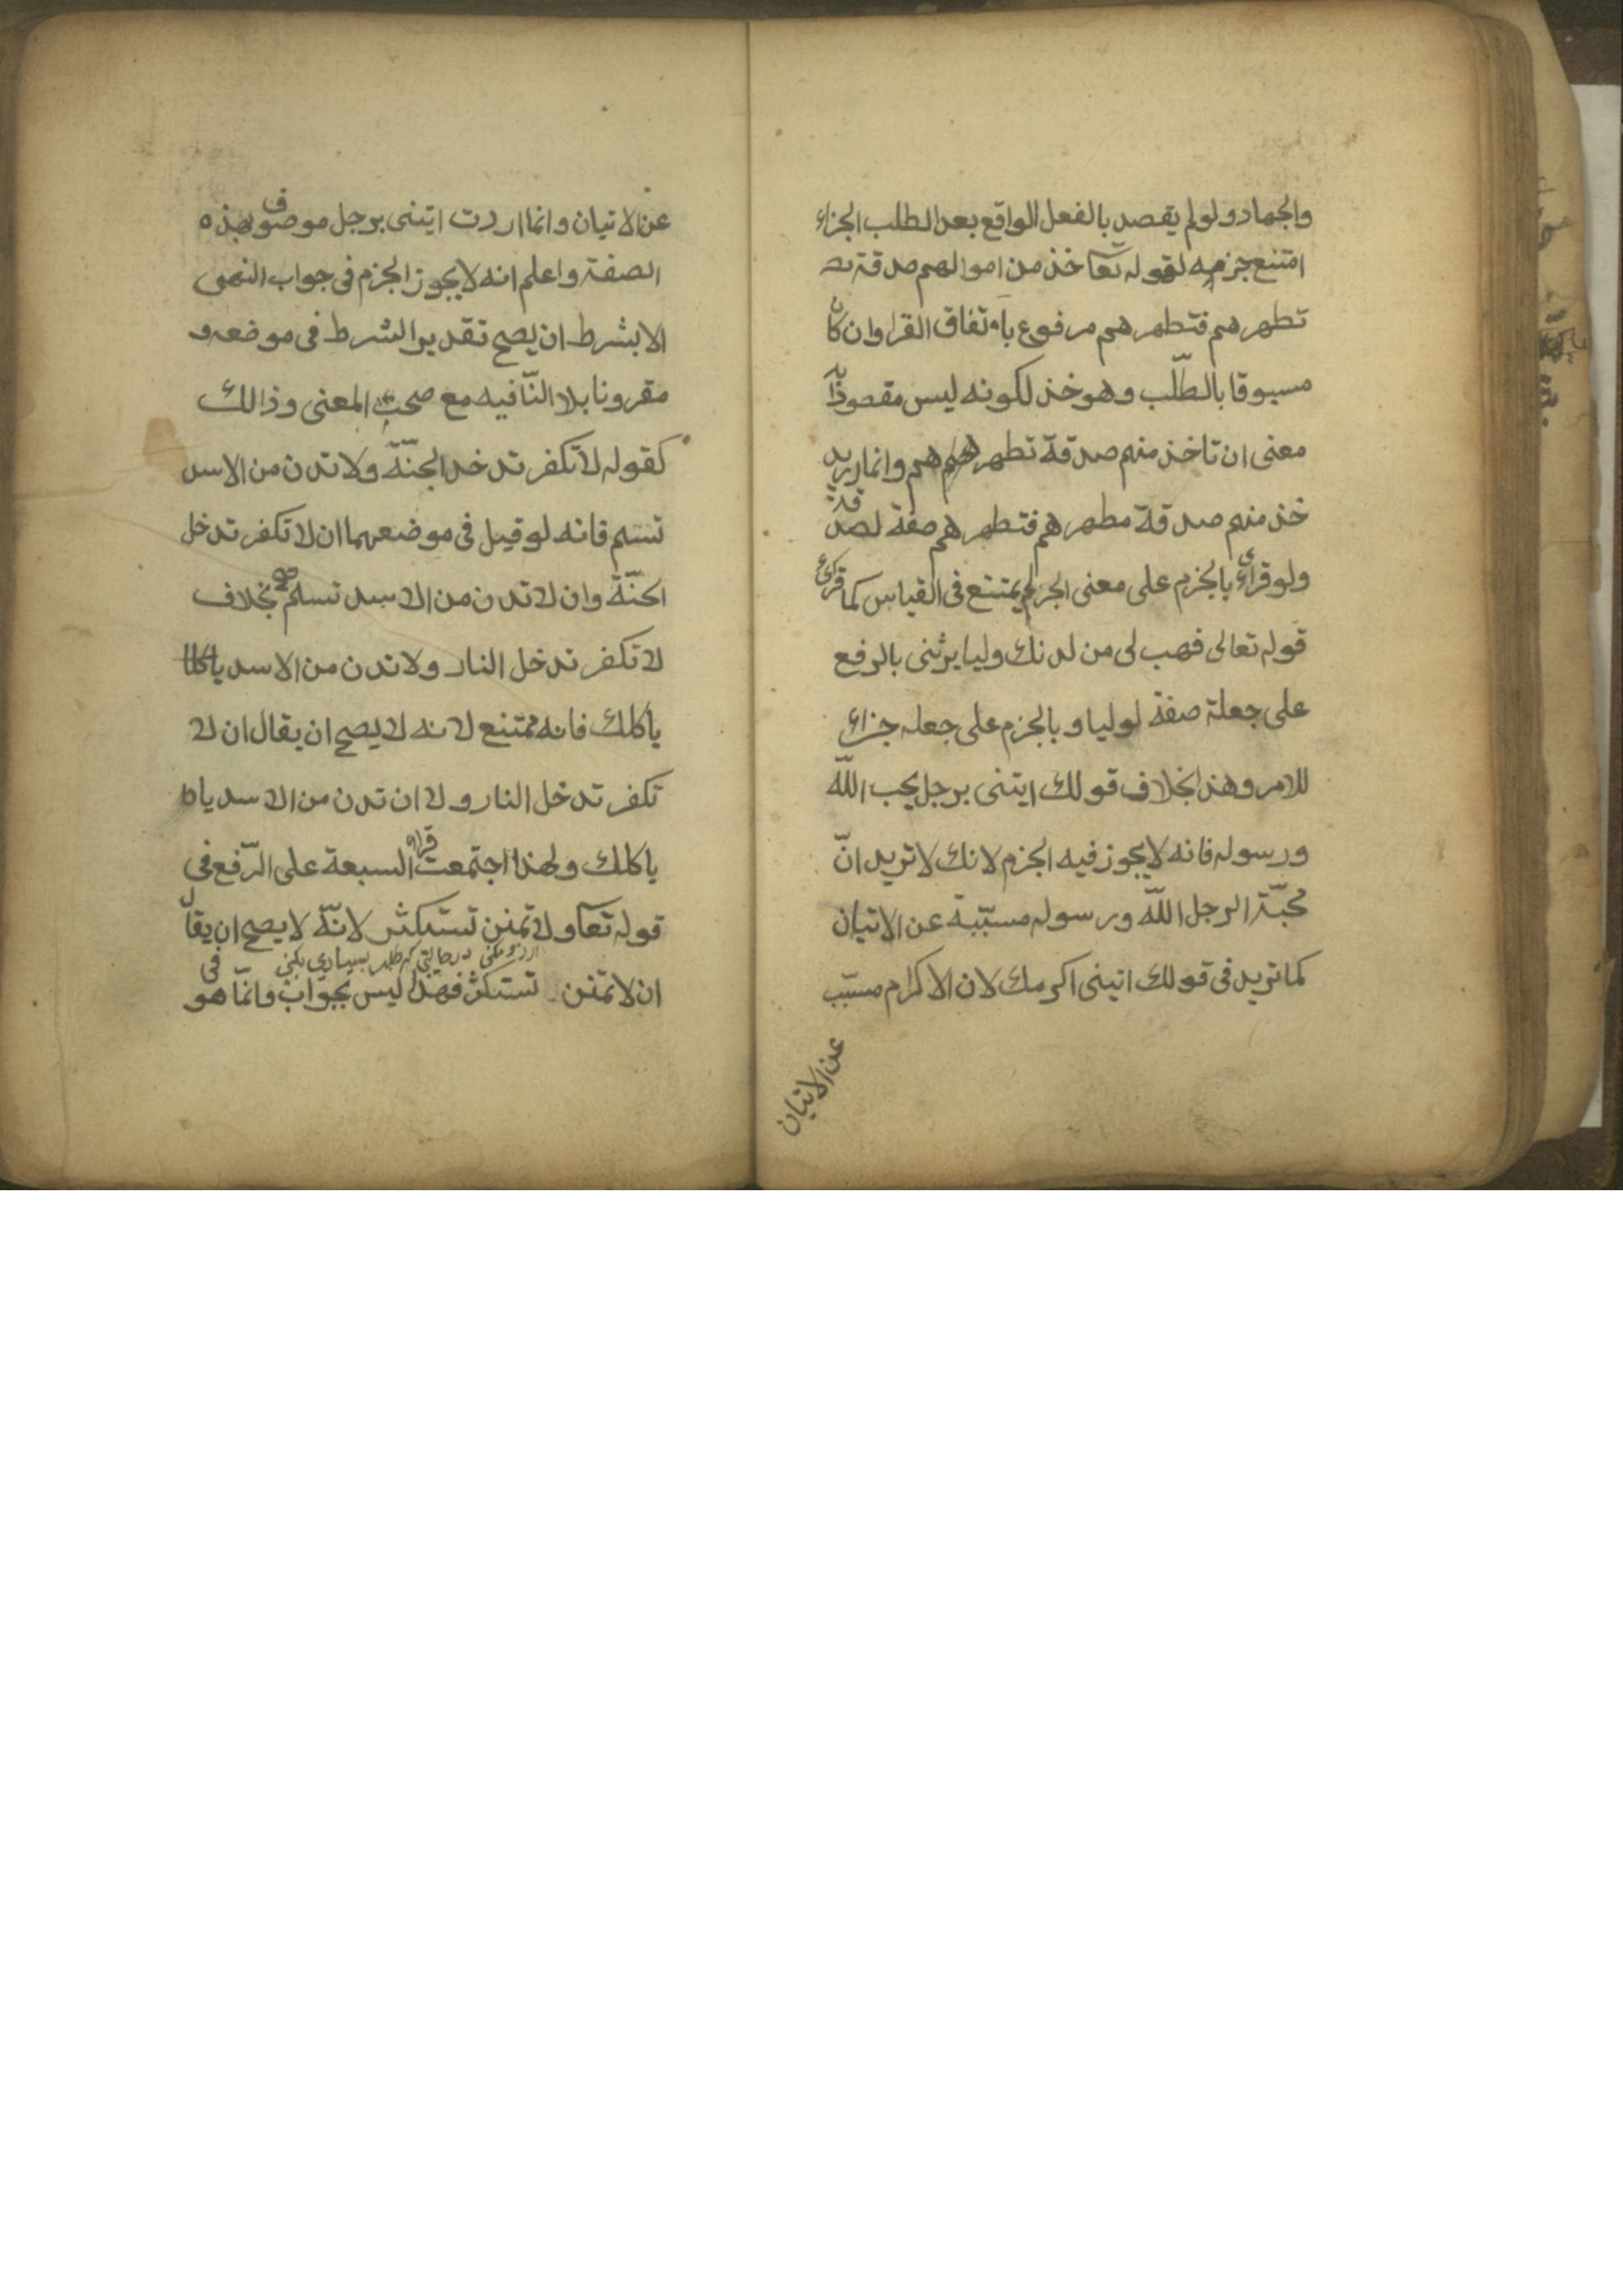 والجهاد ولو لم يقصد بالفعل الواقع بعد الطلب الجزاء
امتنع جزمه لقوله تعا خذ من اموالهم صدقة تط
تطهر هم فتطهر هم مرفوع باتفاق القراء وان كان
مسبوقا بالطلّب وهو خذ لكونه ليس مقصودًا
معنى ان تاخذ منهم صدقة تطهر هم وانما اريد
خذ منهم صدقة مطهر هم فتطهر هم صفة لصدقة
ولو قرائ بالجزم على معنى الجزاء لم يمتنع فى القياس كما قرئ
قوله تعالى فهب لى من لدنك وليا يرثنى بالرفع
على جعلة صفة لوليا و بالجزم على جعله جزاء
للامر وهذا بخلاف قولك ايتنى برجل يحب اللّه
ورسوله فانه لا يجوز فيه الجزم لانك لا تريد انّ
محبّة الرجل اللّه ورسوله مسبّبة عن الاتيان
كما تريد فى قولك اتينى اكرمك لان الاكرام مسبّب
عن الاتيان
عن الاتيان وانما اردت ايتنى برجل موصوف بهذه
الصفة واعلم انه لا يجوز الجزم فى جواب النهى
الا بشرط ان يصح تقدير الشرط فى موضعه و
مقرونا بلا النّافيه مع صحت المعنى وذالك
كقوله لا تكفر تدخد الجنّة ولا تدن من الاسد
تسلم فانه لو قيل فى موضعهما ان لا تكفر تدخل
الجنّة وان لا تدن من الاسد تسلم صح بخلاف
لا تكفر تدخل النار ولا تدن من الاسد
ياكلك فانه ممتنع لانه لا يصح ان يقال ان لا
تكفر تدخل النار و لا ان تدن من الاسد ياك
ياكلك ولهذا اجتمعت قراء السبعة على الرّفع فى
قوله تعا ولا تمنن تستكثر لانّه لا يصح ان يقال
در حالتى كه طلب بسيارى بكنى
ان لا تمنن تستكثر فهذا ليس بجواب وانمّا هو فى